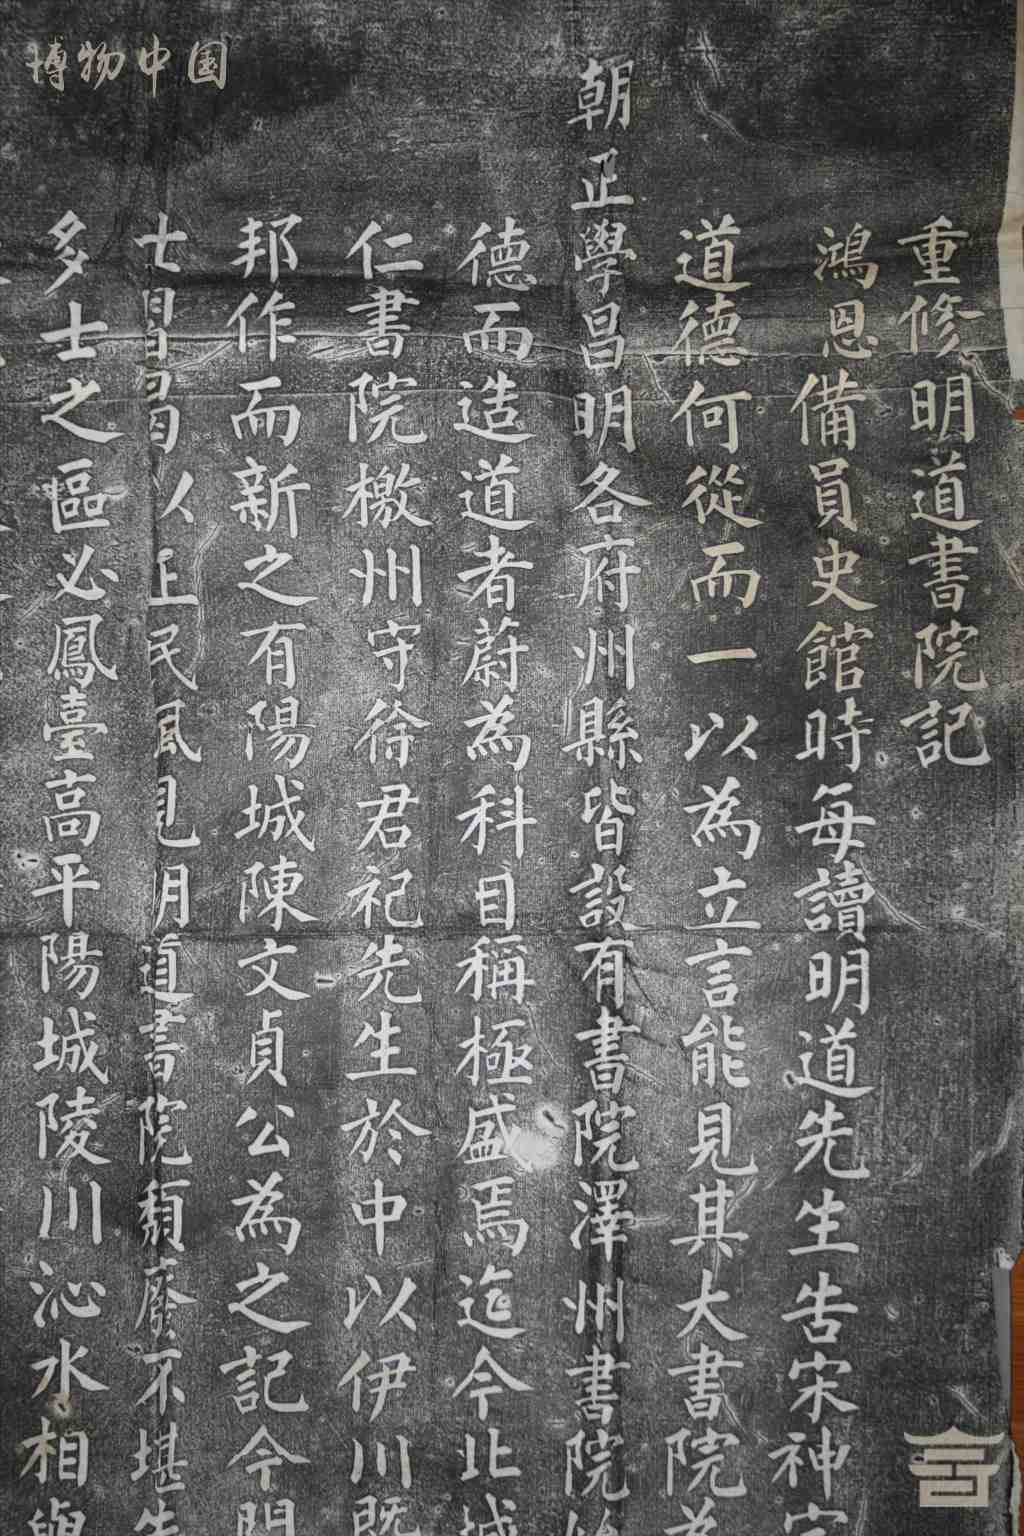 博物中国
重修明道書院記
鴻恩備員史館時每讀明道先生告宋神宗
道德何從而一以為立言能見其大書院
朝正學昌明各府州縣皆設有書院澤州書院
德而造道者蔚為科目稱極盛焉迄今北城
仁書院檄州守徐君祀先生於中以伊川既
邦作而新之有陽城陳文貞公為之記今門
士習以正民風見明道書院頹廢不堪
多士之區必鳳臺高平陽城陵川沁水相與